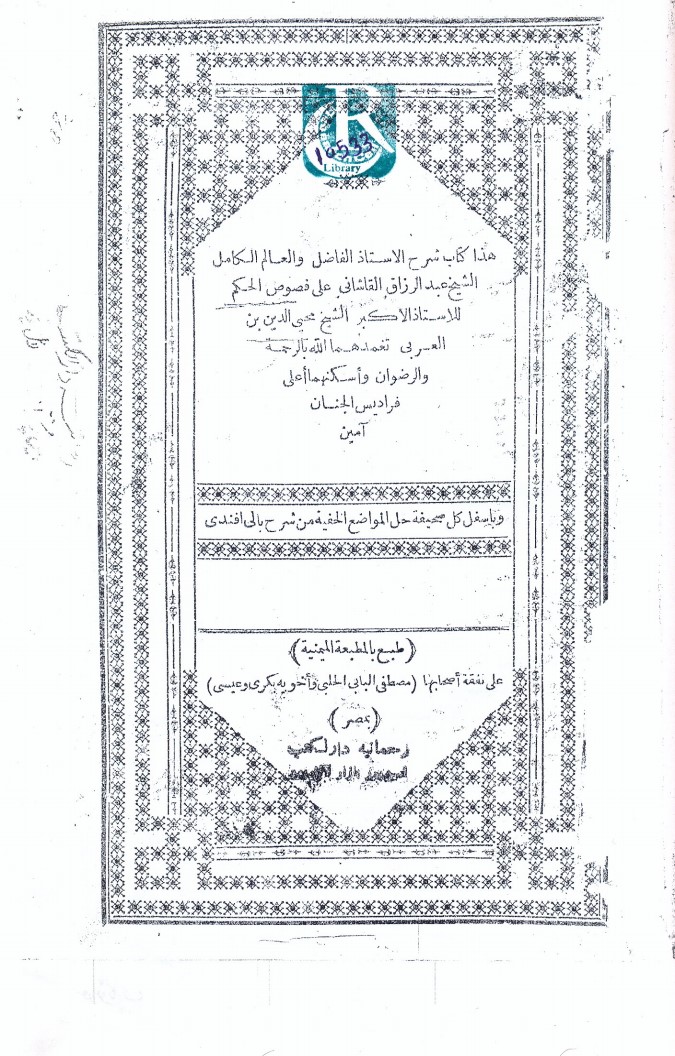 10533
Library
هذا كتاب شرح الاستاذ الفاضل والعالم الكامل
الشيخ عبد الرزاق القاشاني على فصوص الحكم
للاستاذ الاكبر الشيخ محيي الدين بن
العربى تغمدهما الله بالرحمة
والرضوان وأسكنهما أعلى
فراديس الجنان
آمين
وبأسفل كل صحيفة حل المواضع الخفية من شرح بالى افندى
(طبع بالمطبعة الميمنية)
على نفقة أصحابها (مصطفى البابى الحلبى وأخويه بكرى وعيسى)
(بمصر)
رحمانيه دار الكتب